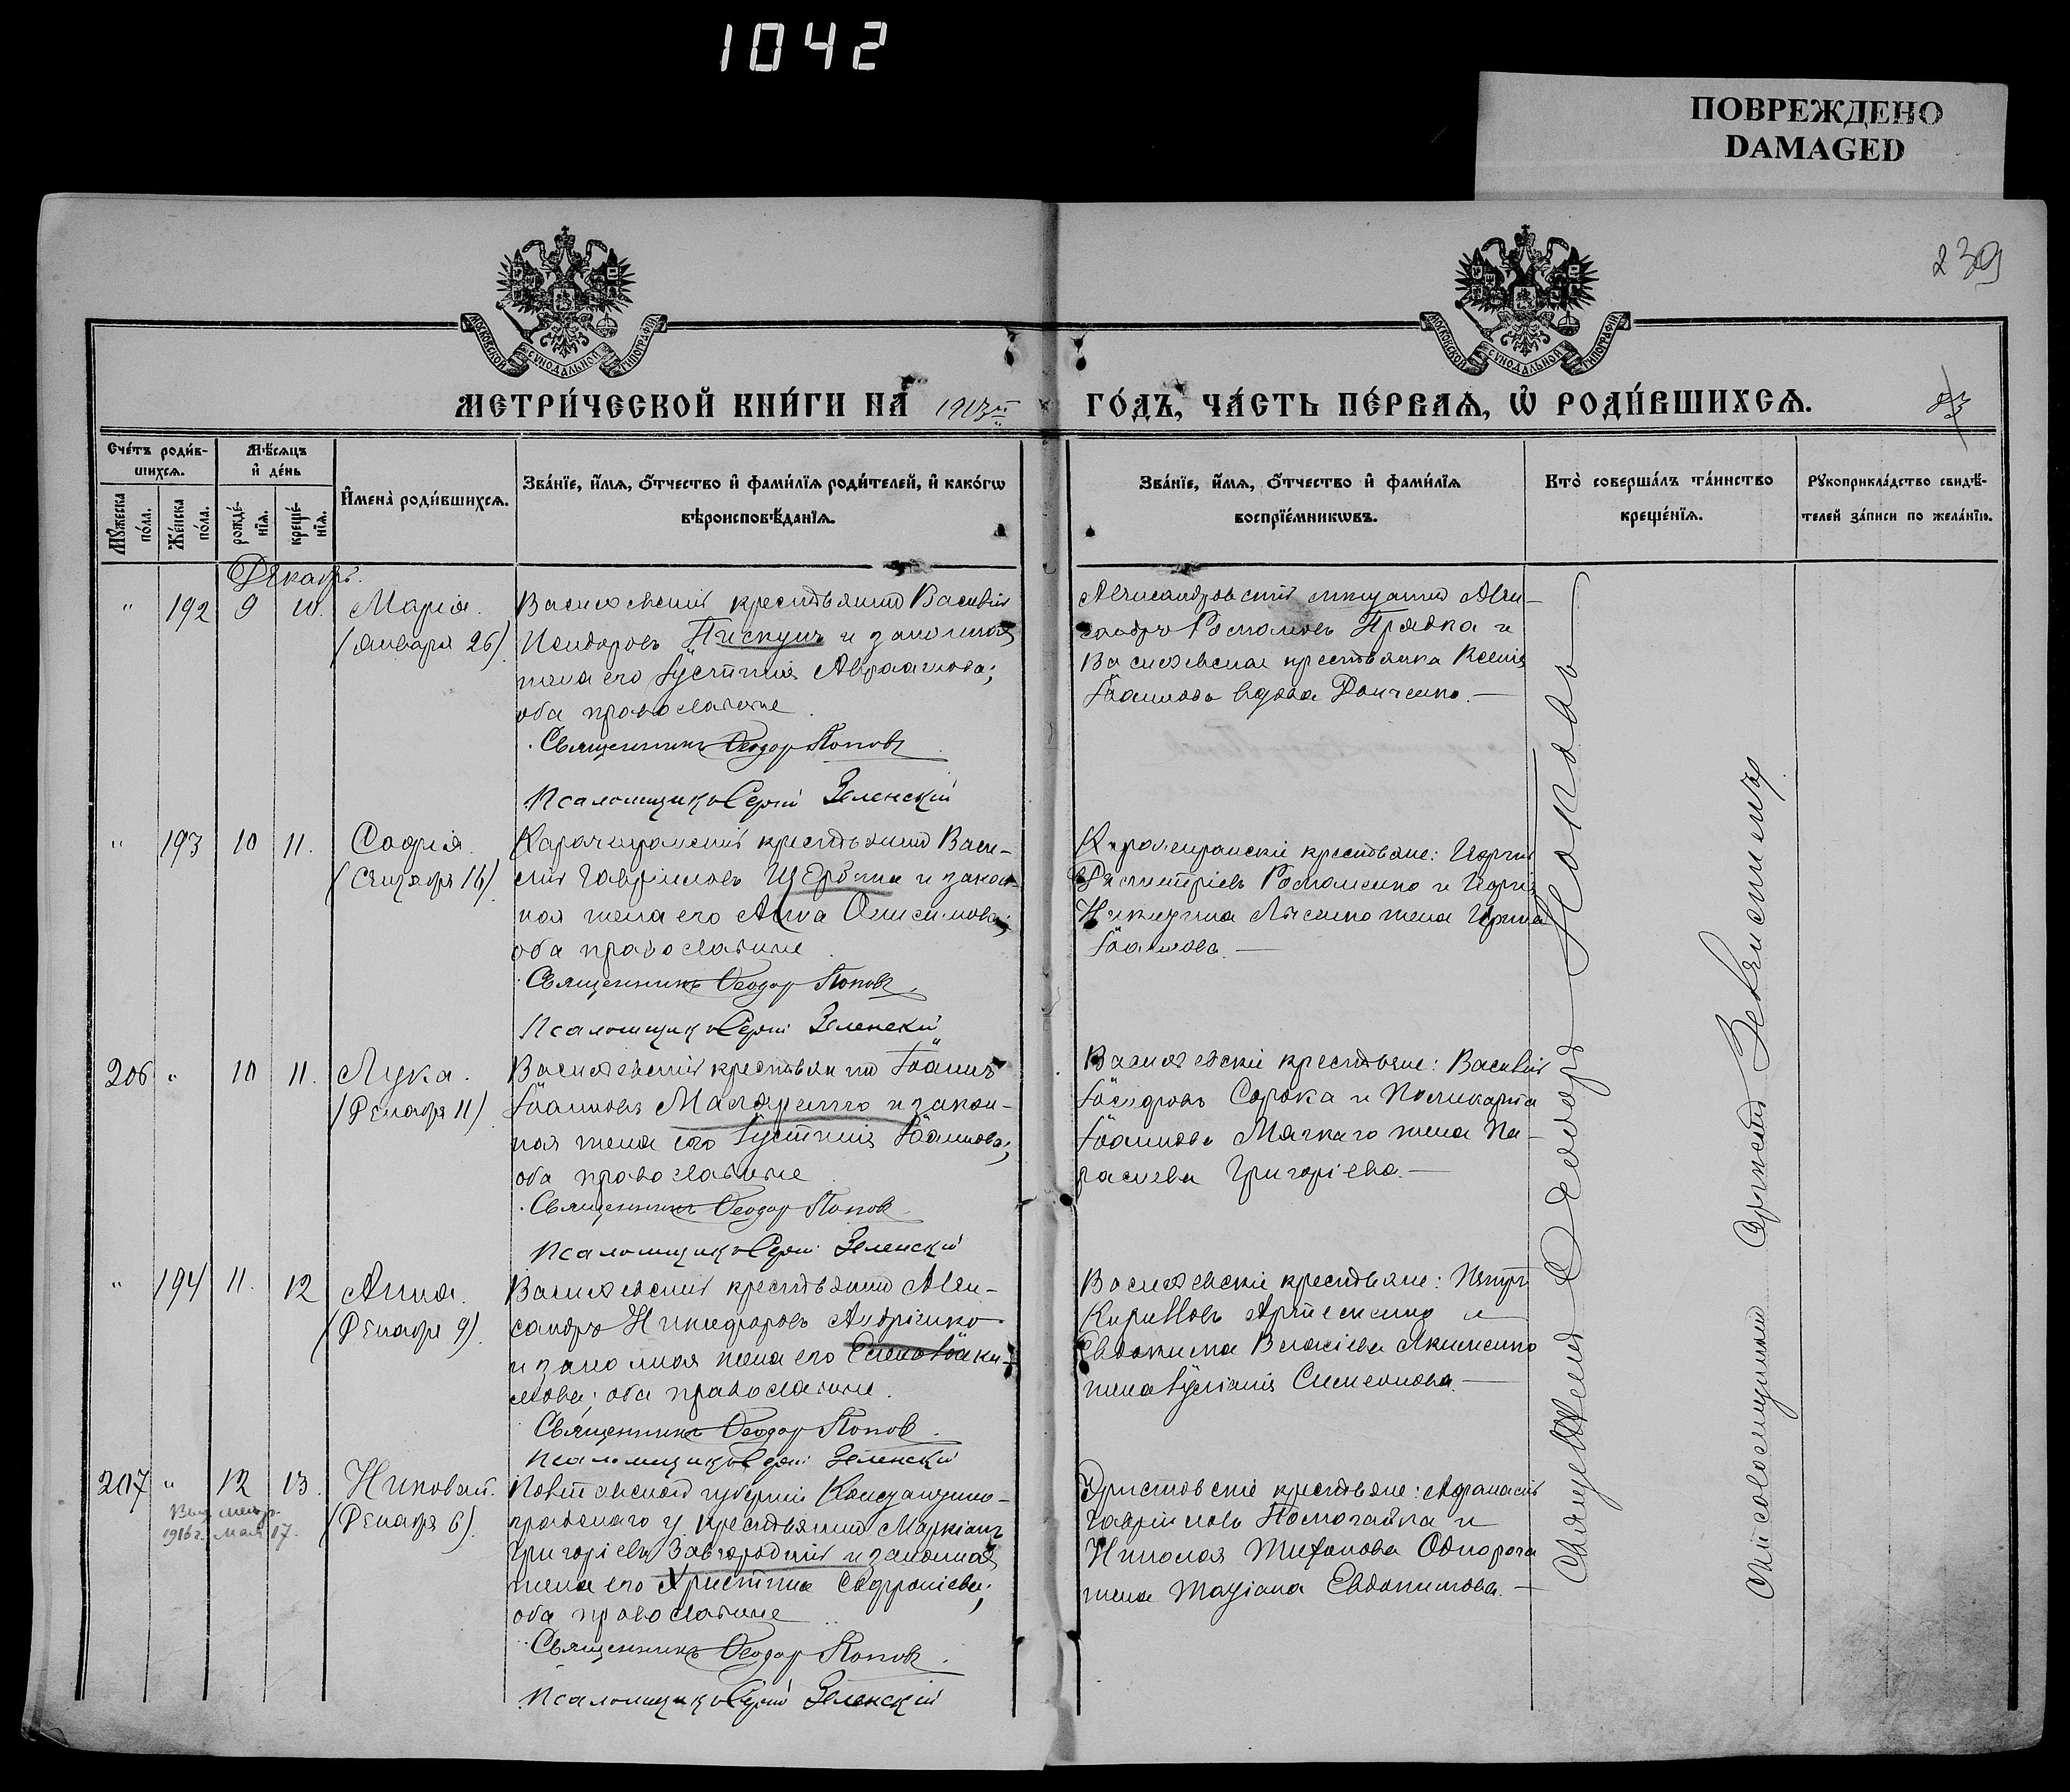 1042
ПОВРЕЖДЕНО
DAMAGED
239
МОСКОВСКОЙ СУНОДАЛЬНОЙ ТИПОГРАФІИ
МОСКОВСКОЙ СУНОДАЛЬНОЙ ТИПОГРАФІИ
МЕТРИ́ЧЕСКОЙ КНИ́ГИ НА 1913й ГО́ДЪ, ЧА́СТЬ ПЕ́РВАѦ, Ѡ҆ РОДИ́ВШИХСѦ.
83
Сче́тъ роди́в-
шихсѧ.
Мꙋ́жеска по́ла.
Же́нска по́ла.
Мѣ́сѧцъ
и҆ де́нь
рожде́-
нїѧ.
креще́-
нїѧ.
И҆мена̀ роди́вшихсѧ.
Зва́нїе, и҆́мѧ, ѻ҆́тчество и҆ фами́лїѧ роди́телей, и҆ како́гѡ
вѣроисповѣ́данїѧ.
Зва́нїе, и҆́мѧ, ѻ҆́тчество и҆ фами́лїѧ
воспрїе́мникѡвъ.
Кто̀ соверша́лъ та́инство
креще́нїѧ.
Рꙋкоприкла́дство свидѣ́-
телей за́писи по жела́нїю.
Декабрь.
" 192 9 10. Марія.
(Января 26)
Васильевскій крестьянинъ Василій
Исидоровъ Пискунъ и законная
жена его Іустинія Авраамова;
оба православные.
Священникъ Ѳеодор Поповъ
Псаломщикъ Сергій Зеленскій
Александровскій мещанинъ Алек-
сандръ Романовъ Прядка и
Васильевская крестьянка Ксенія
Іоаннова вдова Донченко.—
" 193 10 11. Софія.
(Сентября 16)
Карачекракскій крестьянинъ Васи-
лій Гавріиловъ Щербина и закон-
ная жена его Анна Онисимова;
оба православные.
Священникъ Ѳеодор Поповъ
Псаломщикъ Сергій Зеленскій
Карачекракскіе крестьяне: Георгій
Димитріевъ Романенко и Георгія
Никитина Лысенко жена Ирина
Іоаннова.—
206 " 10 11. Лука.
(Декабря 11)
Васильевскій крестьянинъ Іоаннъ
Іоанновъ и закон-
ная жена его Іустинія Іоаннова;
оба православные
Священникъ Ѳеодор Попов
Псаломщикъ Сергій Зеленскій
Васильевскіе крестьяне: Василій
Сорока и Поликарпа
Іоаннова Мягкаго жена Па-
раскева Григоріева.—
" 194 11. 12 Анна.
(Декабря 9).
Васильевскій крестьянинъ Алек-
сандръ Никифоровъ Андріенко
и законная жена его Елена Іоаки-
мова; оба православные.
Священникъ Ѳеодор Попов
Псаломщикъ Сергій Зеленскій
Васильевскіе крестьяне: Петръ
Кирилловъ и
Евдокима Власіева Якименко
жена Іуліанія Симеонова.—
207 " 12 13. Николай.
(Декабря 6).
1916 г. мая 17.
Полтавской губерніи Константино-
градскаго у. крестьянинъ Маркіанъ
Григоріевъ Завгородній и законная
жена его Христина Софроніева;
оба православные
Священникъ Ѳеодор Поповъ
Псаломщикъ Сергій Зеленскій
крестьяне: Аѳанасій
Гавріиловъ Помогайка и
Николая Тихонова Однорога
жена Татіана Евдокимова.—
Священникъ Ѳеодоръ Поповъ
Псаломщикъ Сергій Зеленскій